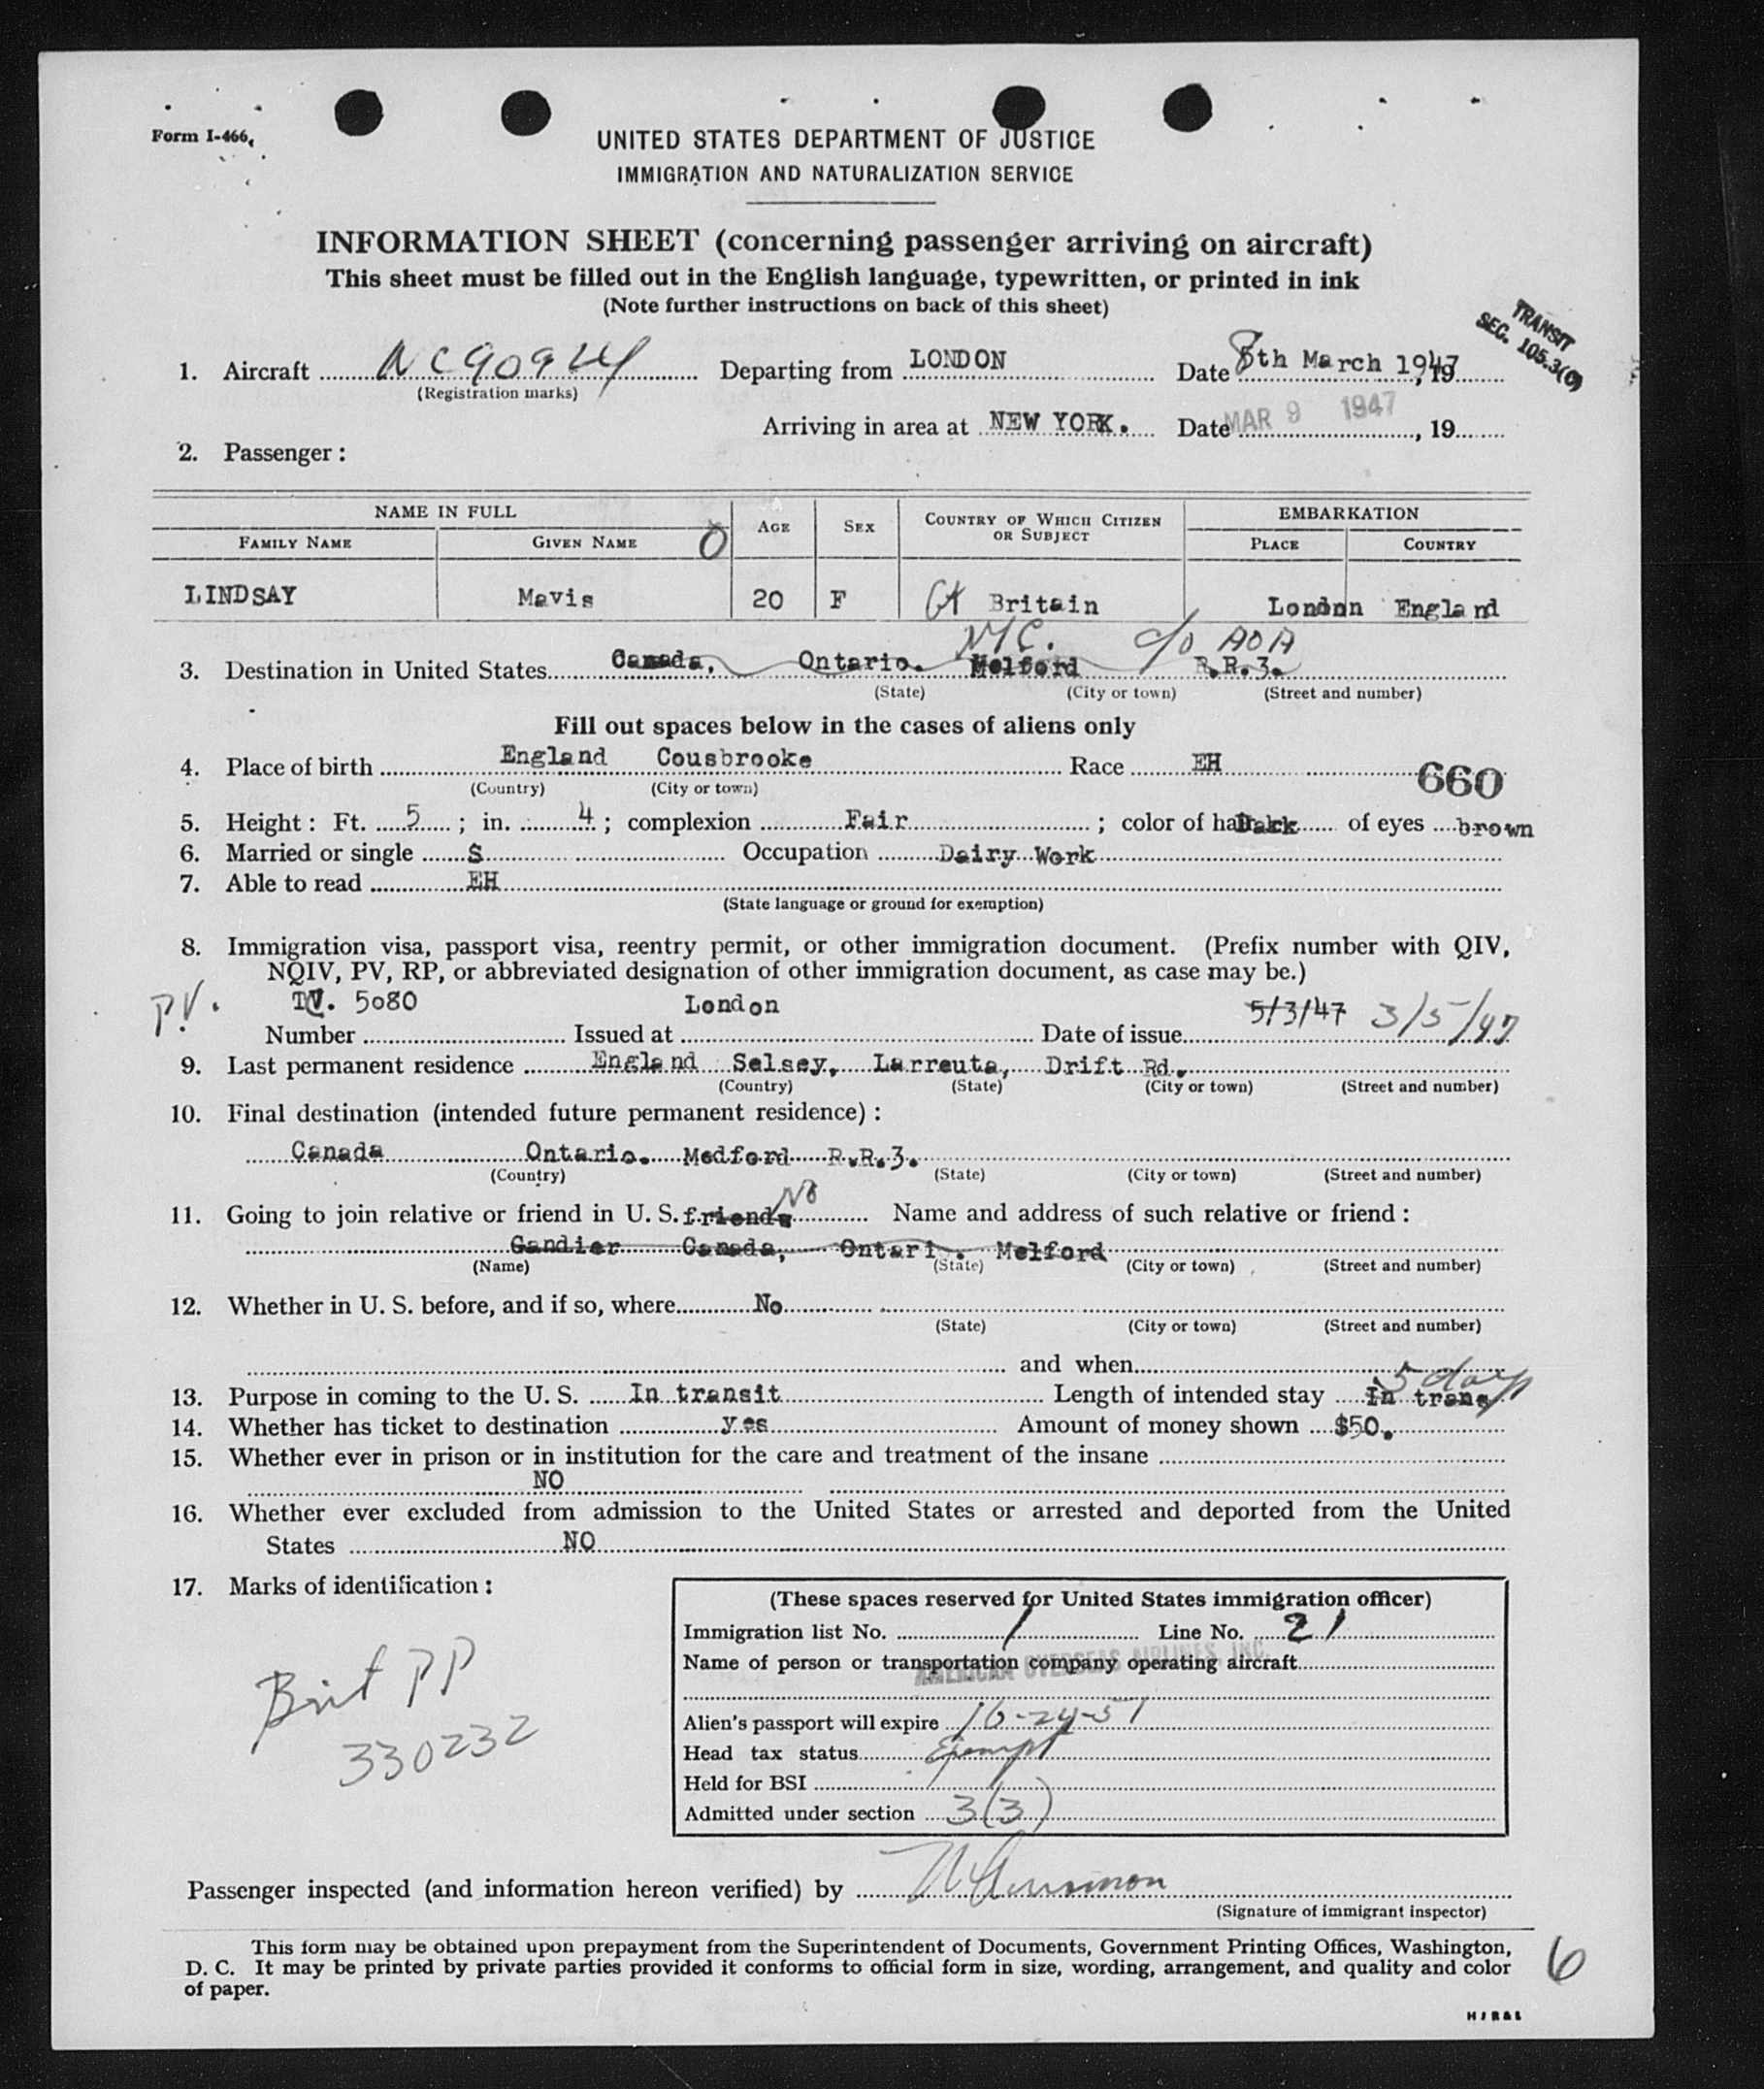 Form I-466
UNITED STATES DEPARTMENT OF JUSTICE
IMMIGRATION AND NATURALIZATION SERVICE
INFORMATION SHEET (concerning passenger arriving on aircraft)
This sheet must be filled out in the English language, typewritten, or printed in ink
(Note further instructions on back of this sheet)
TRANSIT
SEC. 105.3(C)
1. Aircraft NC90924 Departing from LONDON Date 8th March 1947, 19
(Registration marks)
Arriving in area at NEW YORK. Date MAR 9 1947, 19
2. Passenger:
NAME IN FULL AGE SEX COUNTRY OF WHICH CITIZEN OR SUBJECT EMBARKATION
FAMILY NAME GIVEN NAME PLACE COUNTRY
LINDSAY Mavis 20 F Gt Britain London England
NYC. c/o AOA
3. Destination in United States Canada, Ontario. Melford R.R.3.
(State) (City or town) (Street and number)
Fill out spaces below in the cases of aliens only
4. Place of birth England Cousbrooke Race EH
(Country) (City or town)
660
5. Height: Ft. 5; in. 4; complexion Fair; color of hair Dark of eyes brown
6. Married or single S Occupation Dairy Work
7. Able to read EH
(State language or ground for exemption)
8. Immigration visa, passport visa, reentry permit, or other immigration document. (Prefix number with QIV,
NQIV, PV, RP, or abbreviated designation of other immigration document, as case may be.)
PV. 5080 London 5/3/47 3/5/47
Number Issued at Date of issue
9. Last permanent residence England Selsey, Larreuta, Drift Rd.
(Country) (State) (City or town) (Street and number)
10. Final destination (intended future permanent residence):
Canada Ontario. Medford R.R.3.
(Country) (State) (City or town) (Street and number)
11. Going to join relative or friend in U. S. friends No Name and address of such relative or friend:
Gandier Canada, Ontari . Melford
(Name) (State) (City or town) (Street and number)
12. Whether in U. S. before, and if so, where No
(State) (City or town) (Street and number)
and when
5 days
13. Purpose in coming to the U. S. In transit Length of intended stay In trans
14. Whether has ticket to destination yes Amount of money shown $50.
15. Whether ever in prison or in institution for the care and treatment of the insane
NO
16. Whether ever excluded from admission to the United States or arrested and deported from the United
States NO
17. Marks of identification:
Brit PP
330232
(These spaces reserved for United States immigration officer)
Immigration list No. 1 Line No. 21
Name of person or transportation company operating aircraft
AMERICAN OVERSEAS AIRLINES, INC.
Alien's passport will expire 10-24-51
Head tax status Exempt
Held for BSI
Admitted under section 3(3)
Passenger inspected (and information hereon verified) by
(Signature of immigrant inspector)
This form may be obtained upon prepayment from the Superintendent of Documents, Government Printing Offices, Washington,
D. C. It may be printed by private parties provided it conforms to official form in size, wording, arrangement, and quality and color
of paper.
6